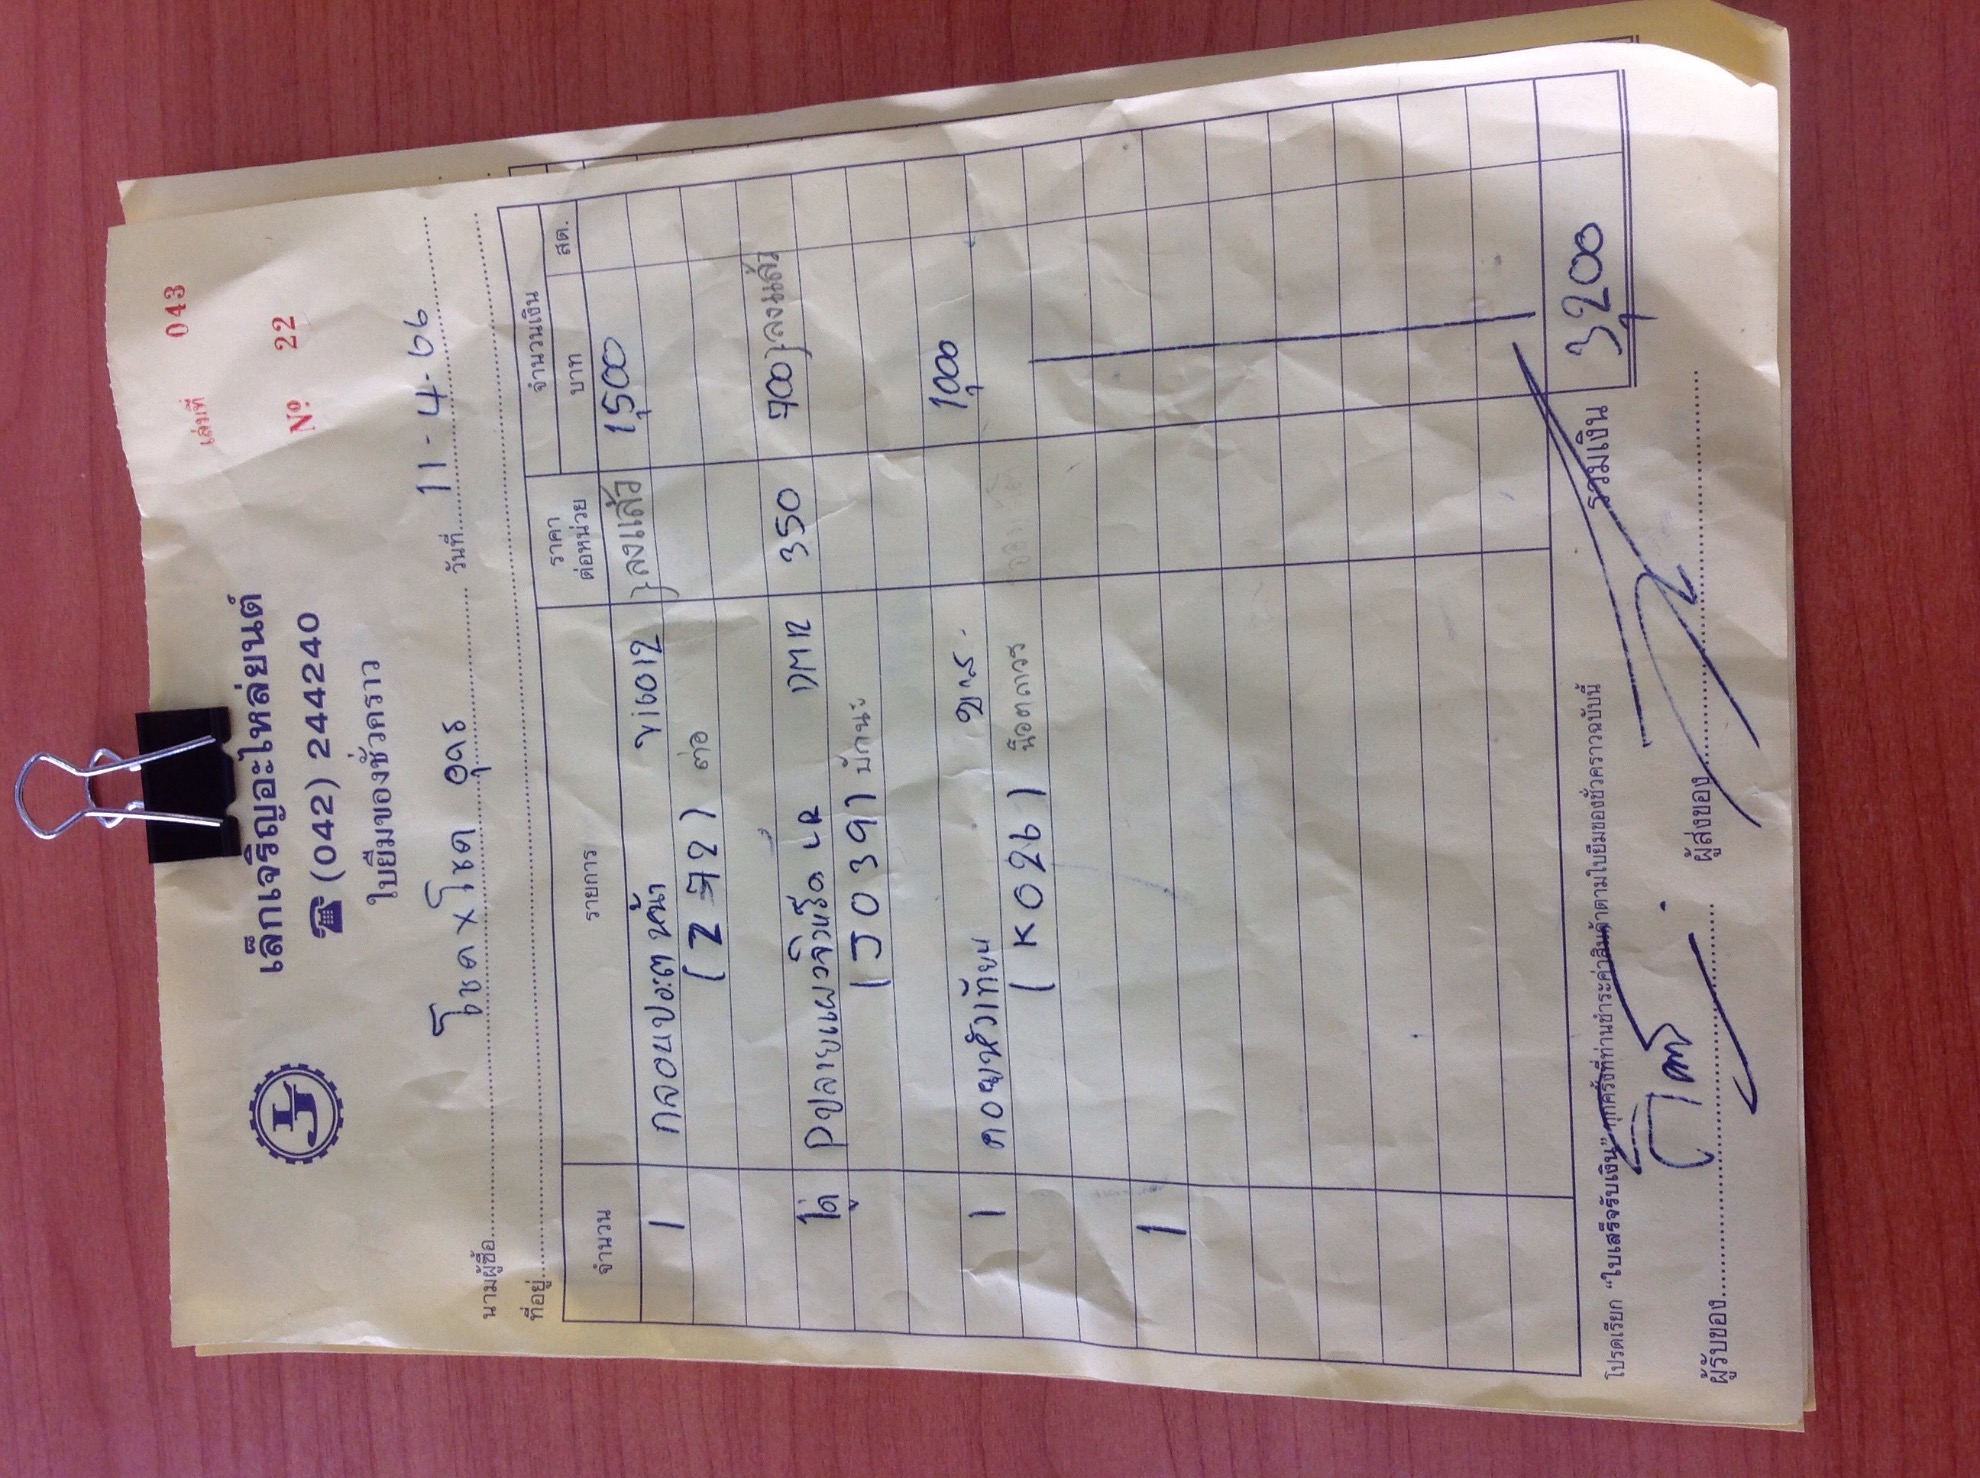 เล่มที่ 043
เล็กเจริญอะไหล่ยนต์
№ 22
☎ (042) 244240
ใบยืมของชั่วคราว
นามผู้ซื้อ โชค x โชค อุดร วันที่ 11-4-66
ที่อยู่
จำนวน รายการ ราคาต่อหน่วย จำนวนเงิน
บาท สต.
1 กลอนประตูหน้า }ลงแล้ว 1,500
ต่อ
1คู่ LR 350 700}ลงแล้ว
(J0391
1 1,000
(K026)
1
รวมเงิน 3,200
โปรดเรียก "ใบเสร็จรับเงิน" ทุกครั้งที่ท่านชำระค่าสินค้าตามใบยืมของชั่วคราวฉบับนี้
ผู้รับของ ผู้ส่งของ